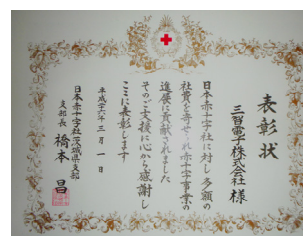 表彰状
三智電子株式会社 様
日本赤十字社に対し多額の
社費を寄せられ赤十字事業の
進展に貢献されました
そのご支援に心から感謝し
ここに表彰します
平成十六年三月一日
日本赤十字社茨城県支部
支部長 橋本 昌